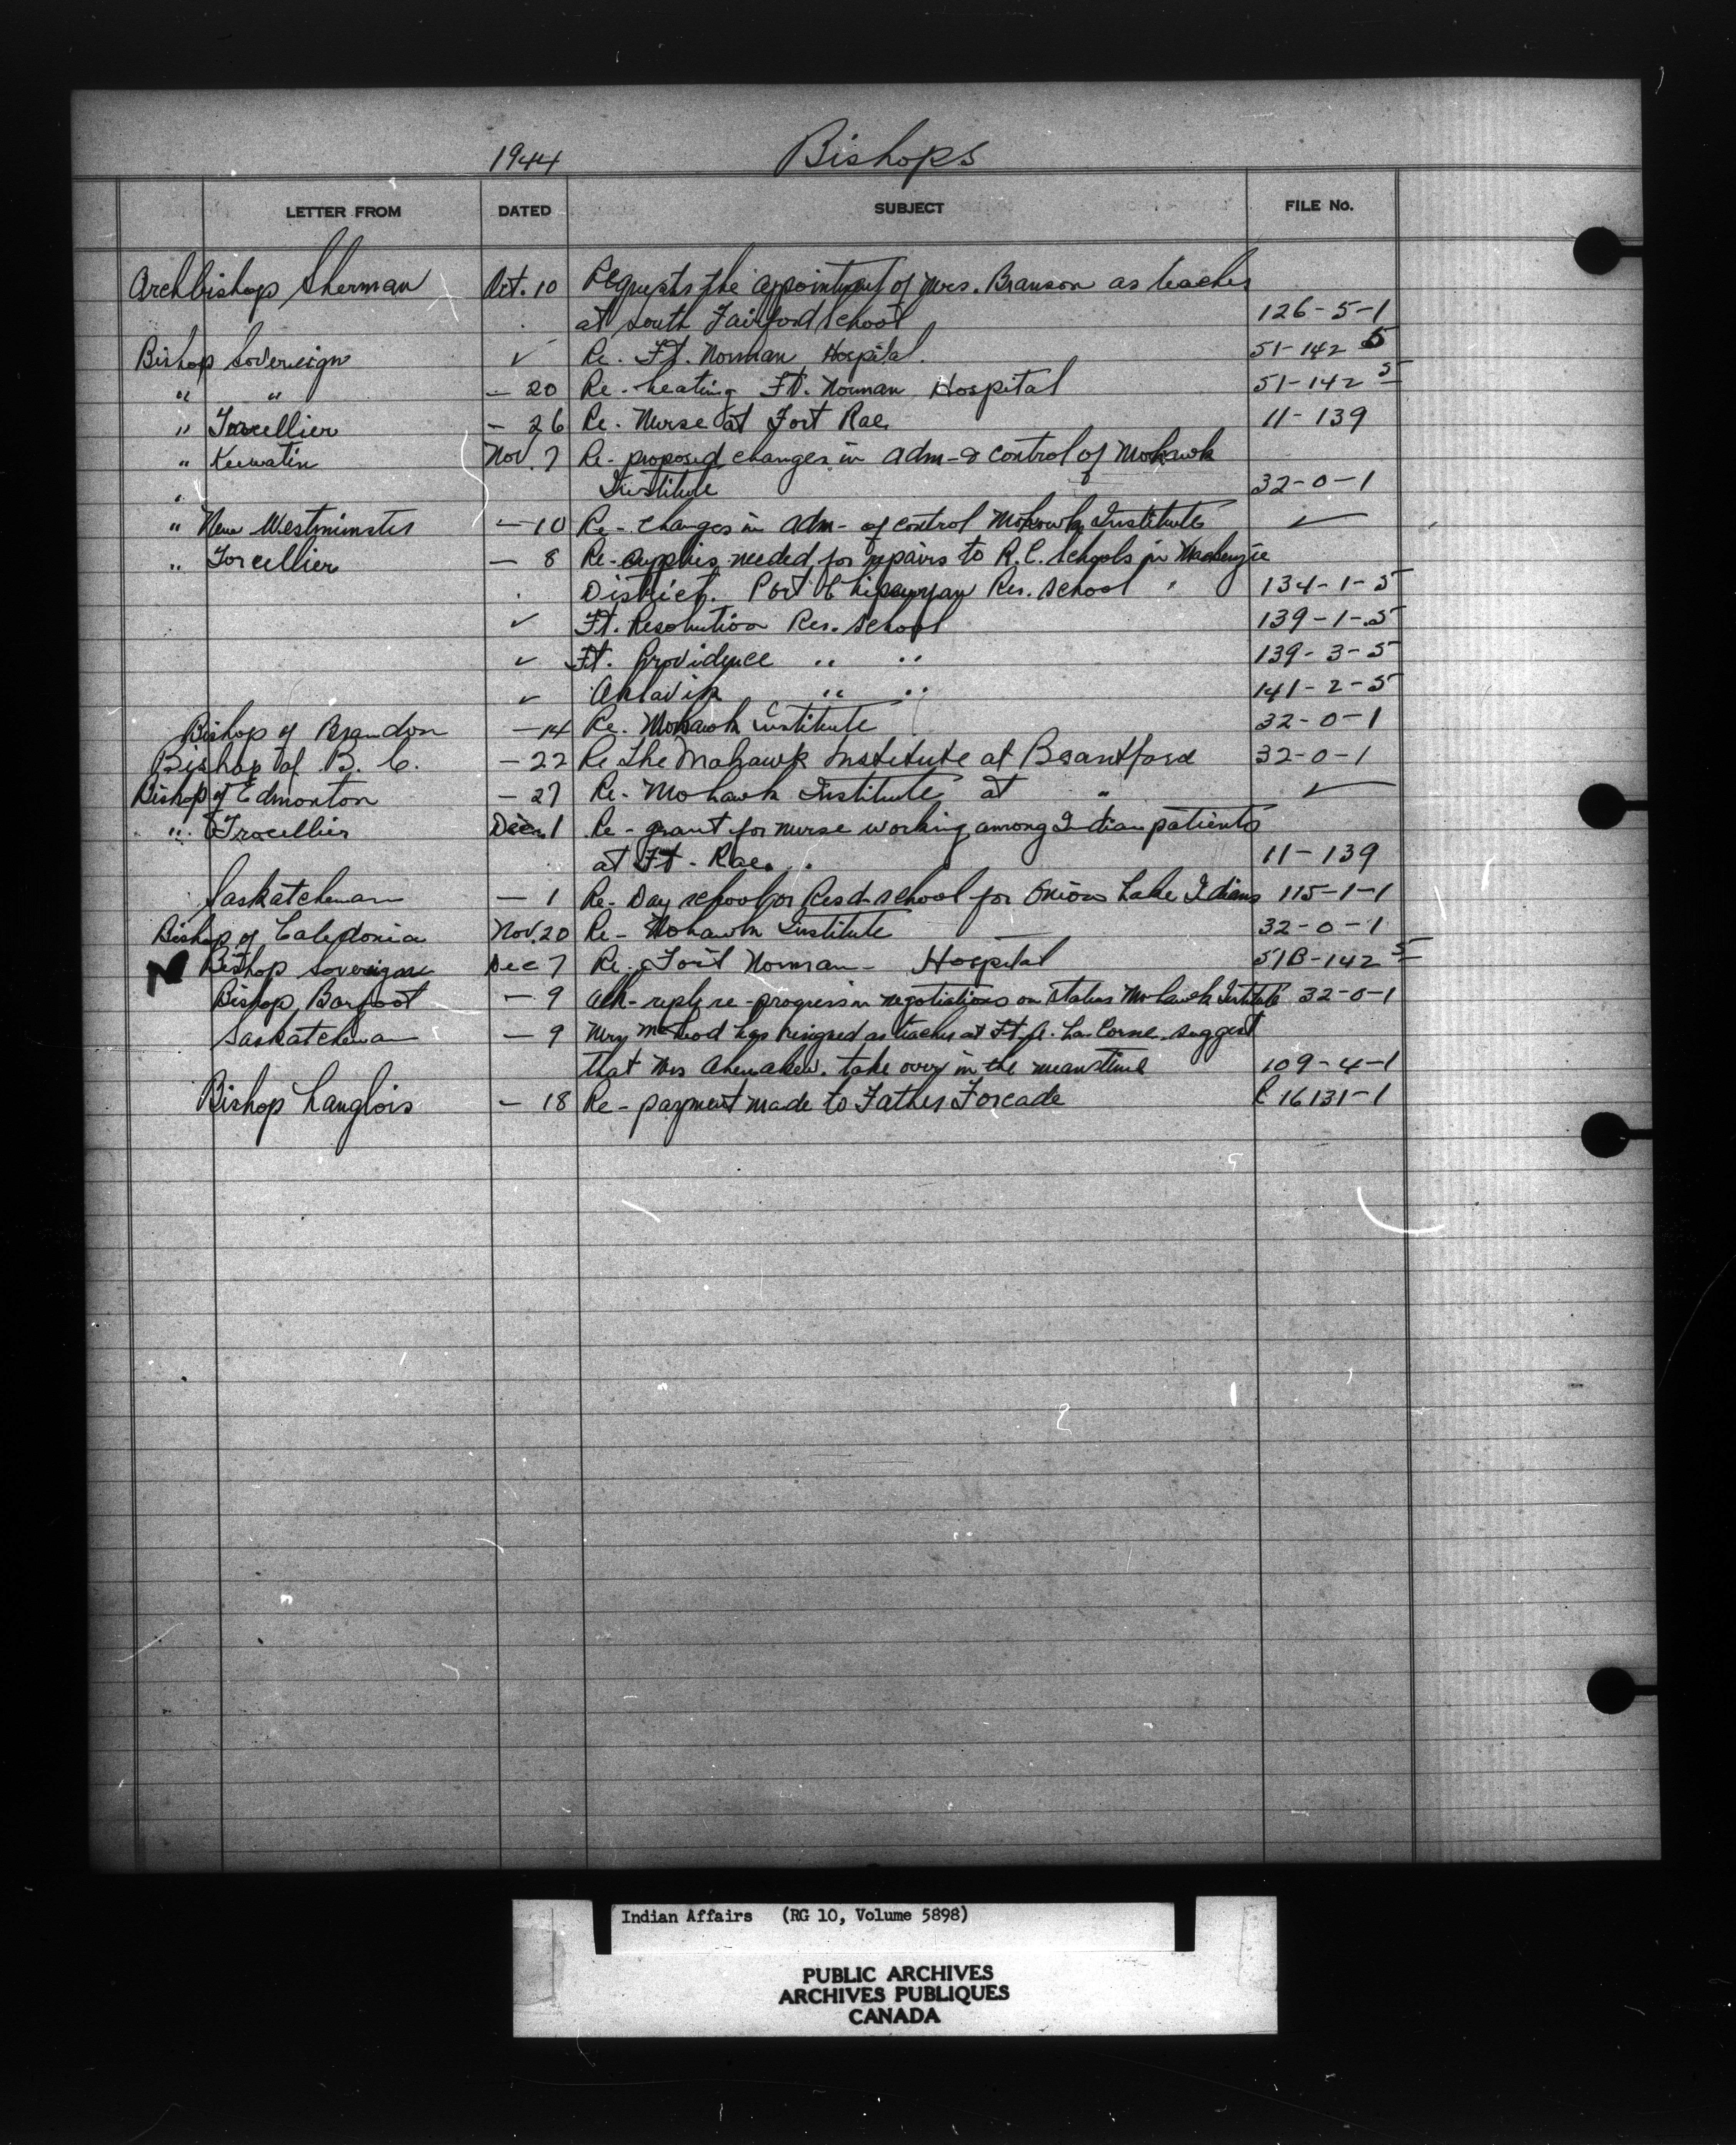 1944 Bishops
LETTER FROM DATED SUBJECT FILE No.
Archbishop Sherman Oct. 10 Requests the appointment of Mrs. Branson as teacher
at South Fairford School 126-5-1
Bishop Sovereign ✓ Re. Ft. Norman Hospital. 51-142 5
" " - 20 Re - heating Ft. Norman Hospital 51-142 5
" Trocellier - 26 Re. Nurse at Fort Rae 11-139
" Keewatin Nov. 7 Re - proposed changes in adm - & control of Mohawk
" Institute 32-0-1
" New Westminster - 10 Re - changes in adm - of control Mohawk Institute ✓
" Trocellier - 8 Re - supplies needed for repairs to R.C. Schools in Mackenzie
District. Fort Chipewyan Res. School 134-1-5
✓ Ft. Resolution Res. School 139-1-5
✓ Ft. Providence " " 139-3-5
✓ Aklavik " " 141-2-5
Bishop of Brandon - 14 Re. Mohawk Institute 32-0-1
Bishop of B.C. - 22 Re the Mohawk Institute at Brantford 32-0-1
Bishop of Edmonton - 27 Re - Mohawk Institute at " ✓
" Trocellier Dec. 1 Re - grant for nurse working among Indian patients
at Ft - Rae. 11-139
Saskatchewan - 1 Re - Day school or Resd - school for Onion Lake Indians 115-1-1
Bishop of Caledonia Nov. 20 Re - Mohawk Institute 32-0-1
N Bishop Sovereign Dec 7 Re - Fort Norman - Hospital 51B-142 5
Bishop Barfoot - 9 Ack - reply re - progress in negotiations on status Mohawk Institute 32-0-1
Saskatchewan - 9 McLeod has resigned as teacher at Ft. A. La Corne. suggest
that Mrs Ahenakew. take over in the meantime 109-4-1
Bishop Langlois - 18 Re - payment made to Father Forcade 16131-1
Indian Affairs (RG 10, Volume 5898)
PUBLIC ARCHIVES
ARCHIVES PUBLIQUES
CANADA